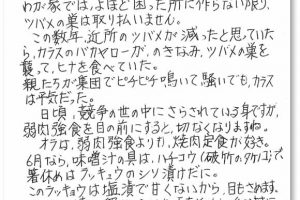 わが家では、よほど困った所に作らない限り、
ツバメの巣は取り払いません。
この数年、近所のツバメが減ったと思っていた
ら、カラスのバカヤローが、のきなみ、ツバメの巣を
襲って、ヒナを食べていた。
親たちが集団でピチピチ鳴いて騒いでも、カラス
は平気だった。
日頃、競争の世の中にさらされている身ですが、
弱肉強食を目の前にすると、切なくなりますね。
オラは、弱肉強食よりも、焼肉定食が好き。
6月なら、味噌汁の具は、ハチコウ(破竹のタケノコ)で、
箸休めは ラッキョウのシリ漬だに。
このラッキョウは塩漬で甘くないから、目もさめます。